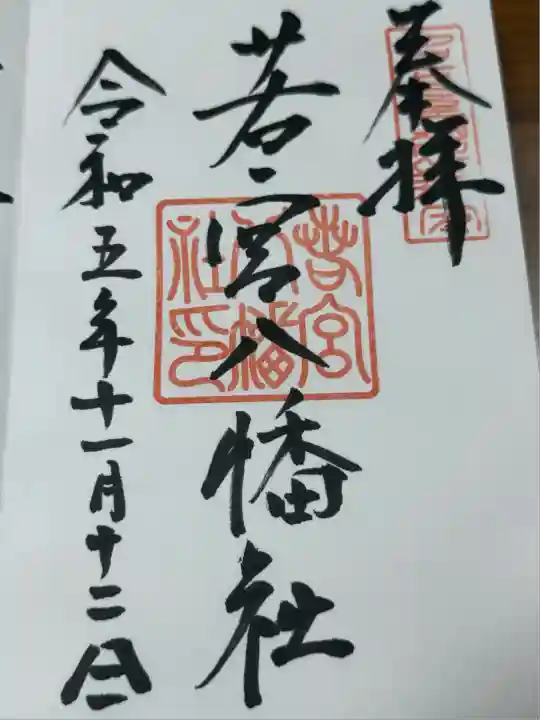 奉拝
若宮八幡社
若宮
八幡
社印
令和五年十一月十二日